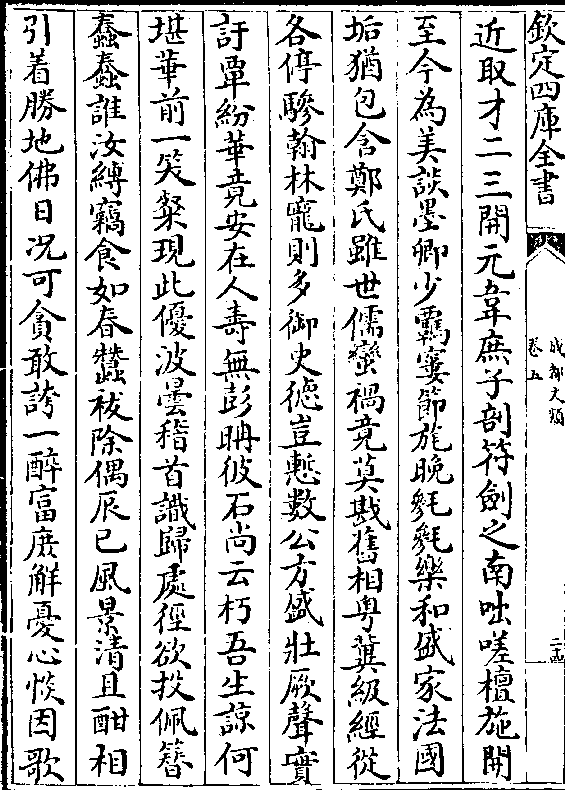 欽定四庫全書
成都文類
卷五
近取才二三開元韋庶子剖符劍之南咄嗟檀施開
至今為美談墨卿少羈寠節旄晚毿毿樂和盛家法國
垢猶包含鄭氏雖世儒蠻禍竟莫戡舊相粤冀級經從
各停驂翰林寵則多御史德豈慙數公方盛壯厥聲實
訏覃紛華竟安在人壽無彭聃彼石尚云朽吾生諒何
堪華前一笑粲現此優波曇稽首識歸處徑欲投佩簪
蠢蠢誰汝縛竊食如春蠶祓除偶辰巳風景清且酣相
引着勝地佛日况可貪敢誇一醉富庶解憂心惔因歌